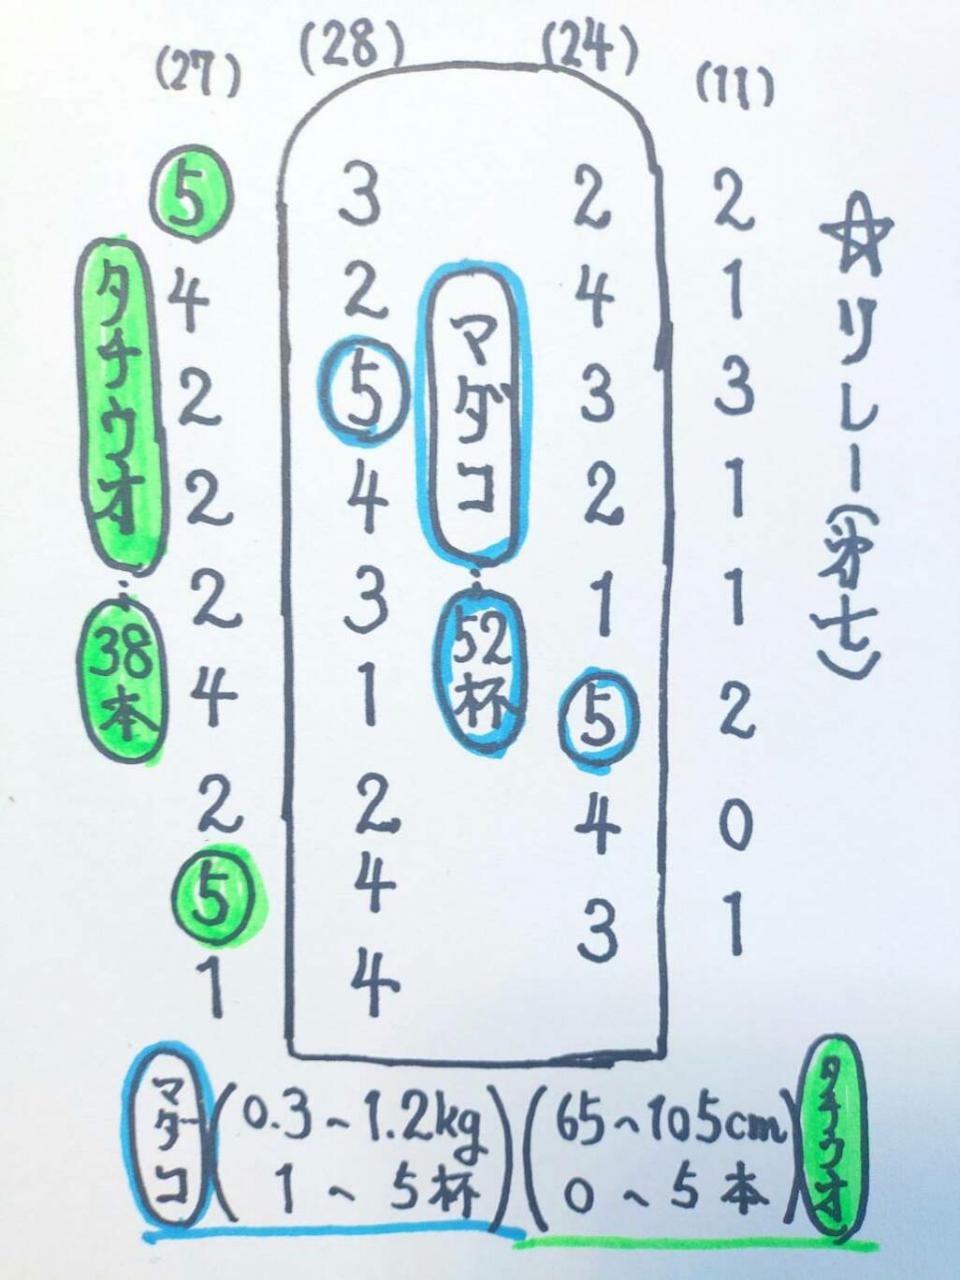 (27) (28) (24) (11)
5 3 2 2
4 2 4 1
2 5 3 3
2 4 2 1
2 3 1 1
4 1 5 2
2 2 4 0
5 4 3 1
1 4
タチウオ
:
38本
マダコ
:
52杯
☆リレー(弟七)
マダコ (0.3~1.2kg 1~5杯)
(65~105cm 0~5本) タチウオ